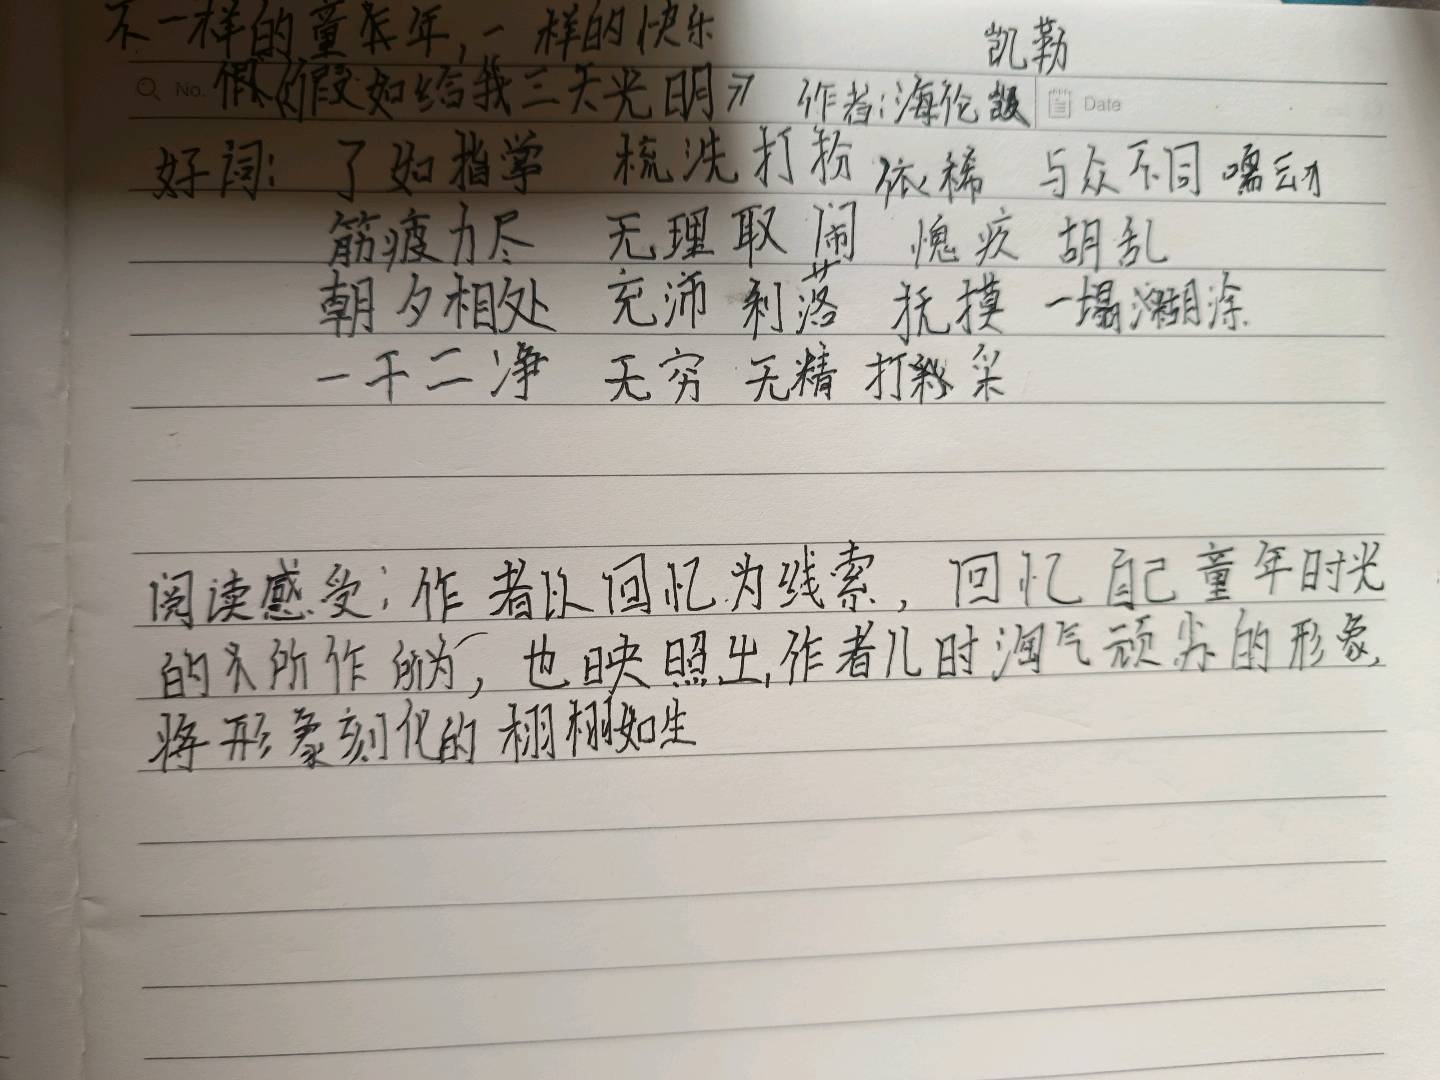 不一样的童年,一样的快乐
凯勒
No. 假如给我三天光明》 作者:海伦 Date
好词: 了如指掌 梳洗打扮 依稀 与众不同 嚅动
筋疲力尽 无理取闹 愧疚 胡乱
朝夕相处 充沛 剥落 抚摸 一塌糊涂
一干二净 无穷 无精打采
阅读感受:作者以回忆为线索,回忆自己童年时光
的所作所为,也映照出作者儿时淘气顽劣的形象,
将形象刻化的栩栩如生